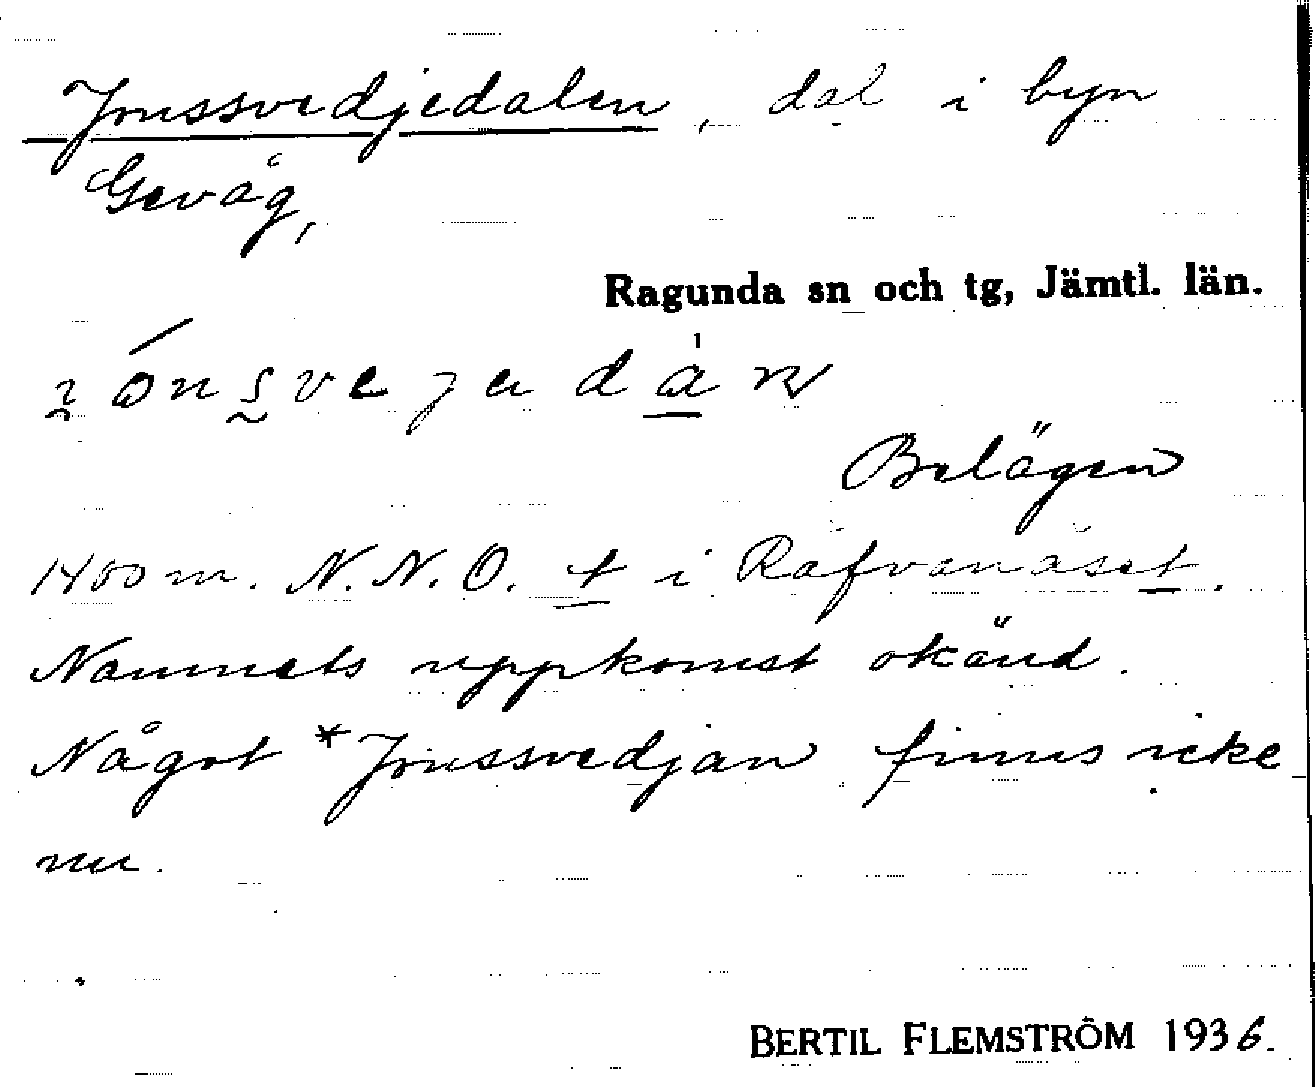 Jonssvedjedalen, dal i byn
Gevåg,
Ragunda sn och tg, Jämtl. län.
Belägen
1400 m. N.N.O. + i Räfvanäset.
Namnets uppkomst okänd.
Något *Jonssvedjan finns icke
nu.
BERTIL FLEMSTRÖM 1936.